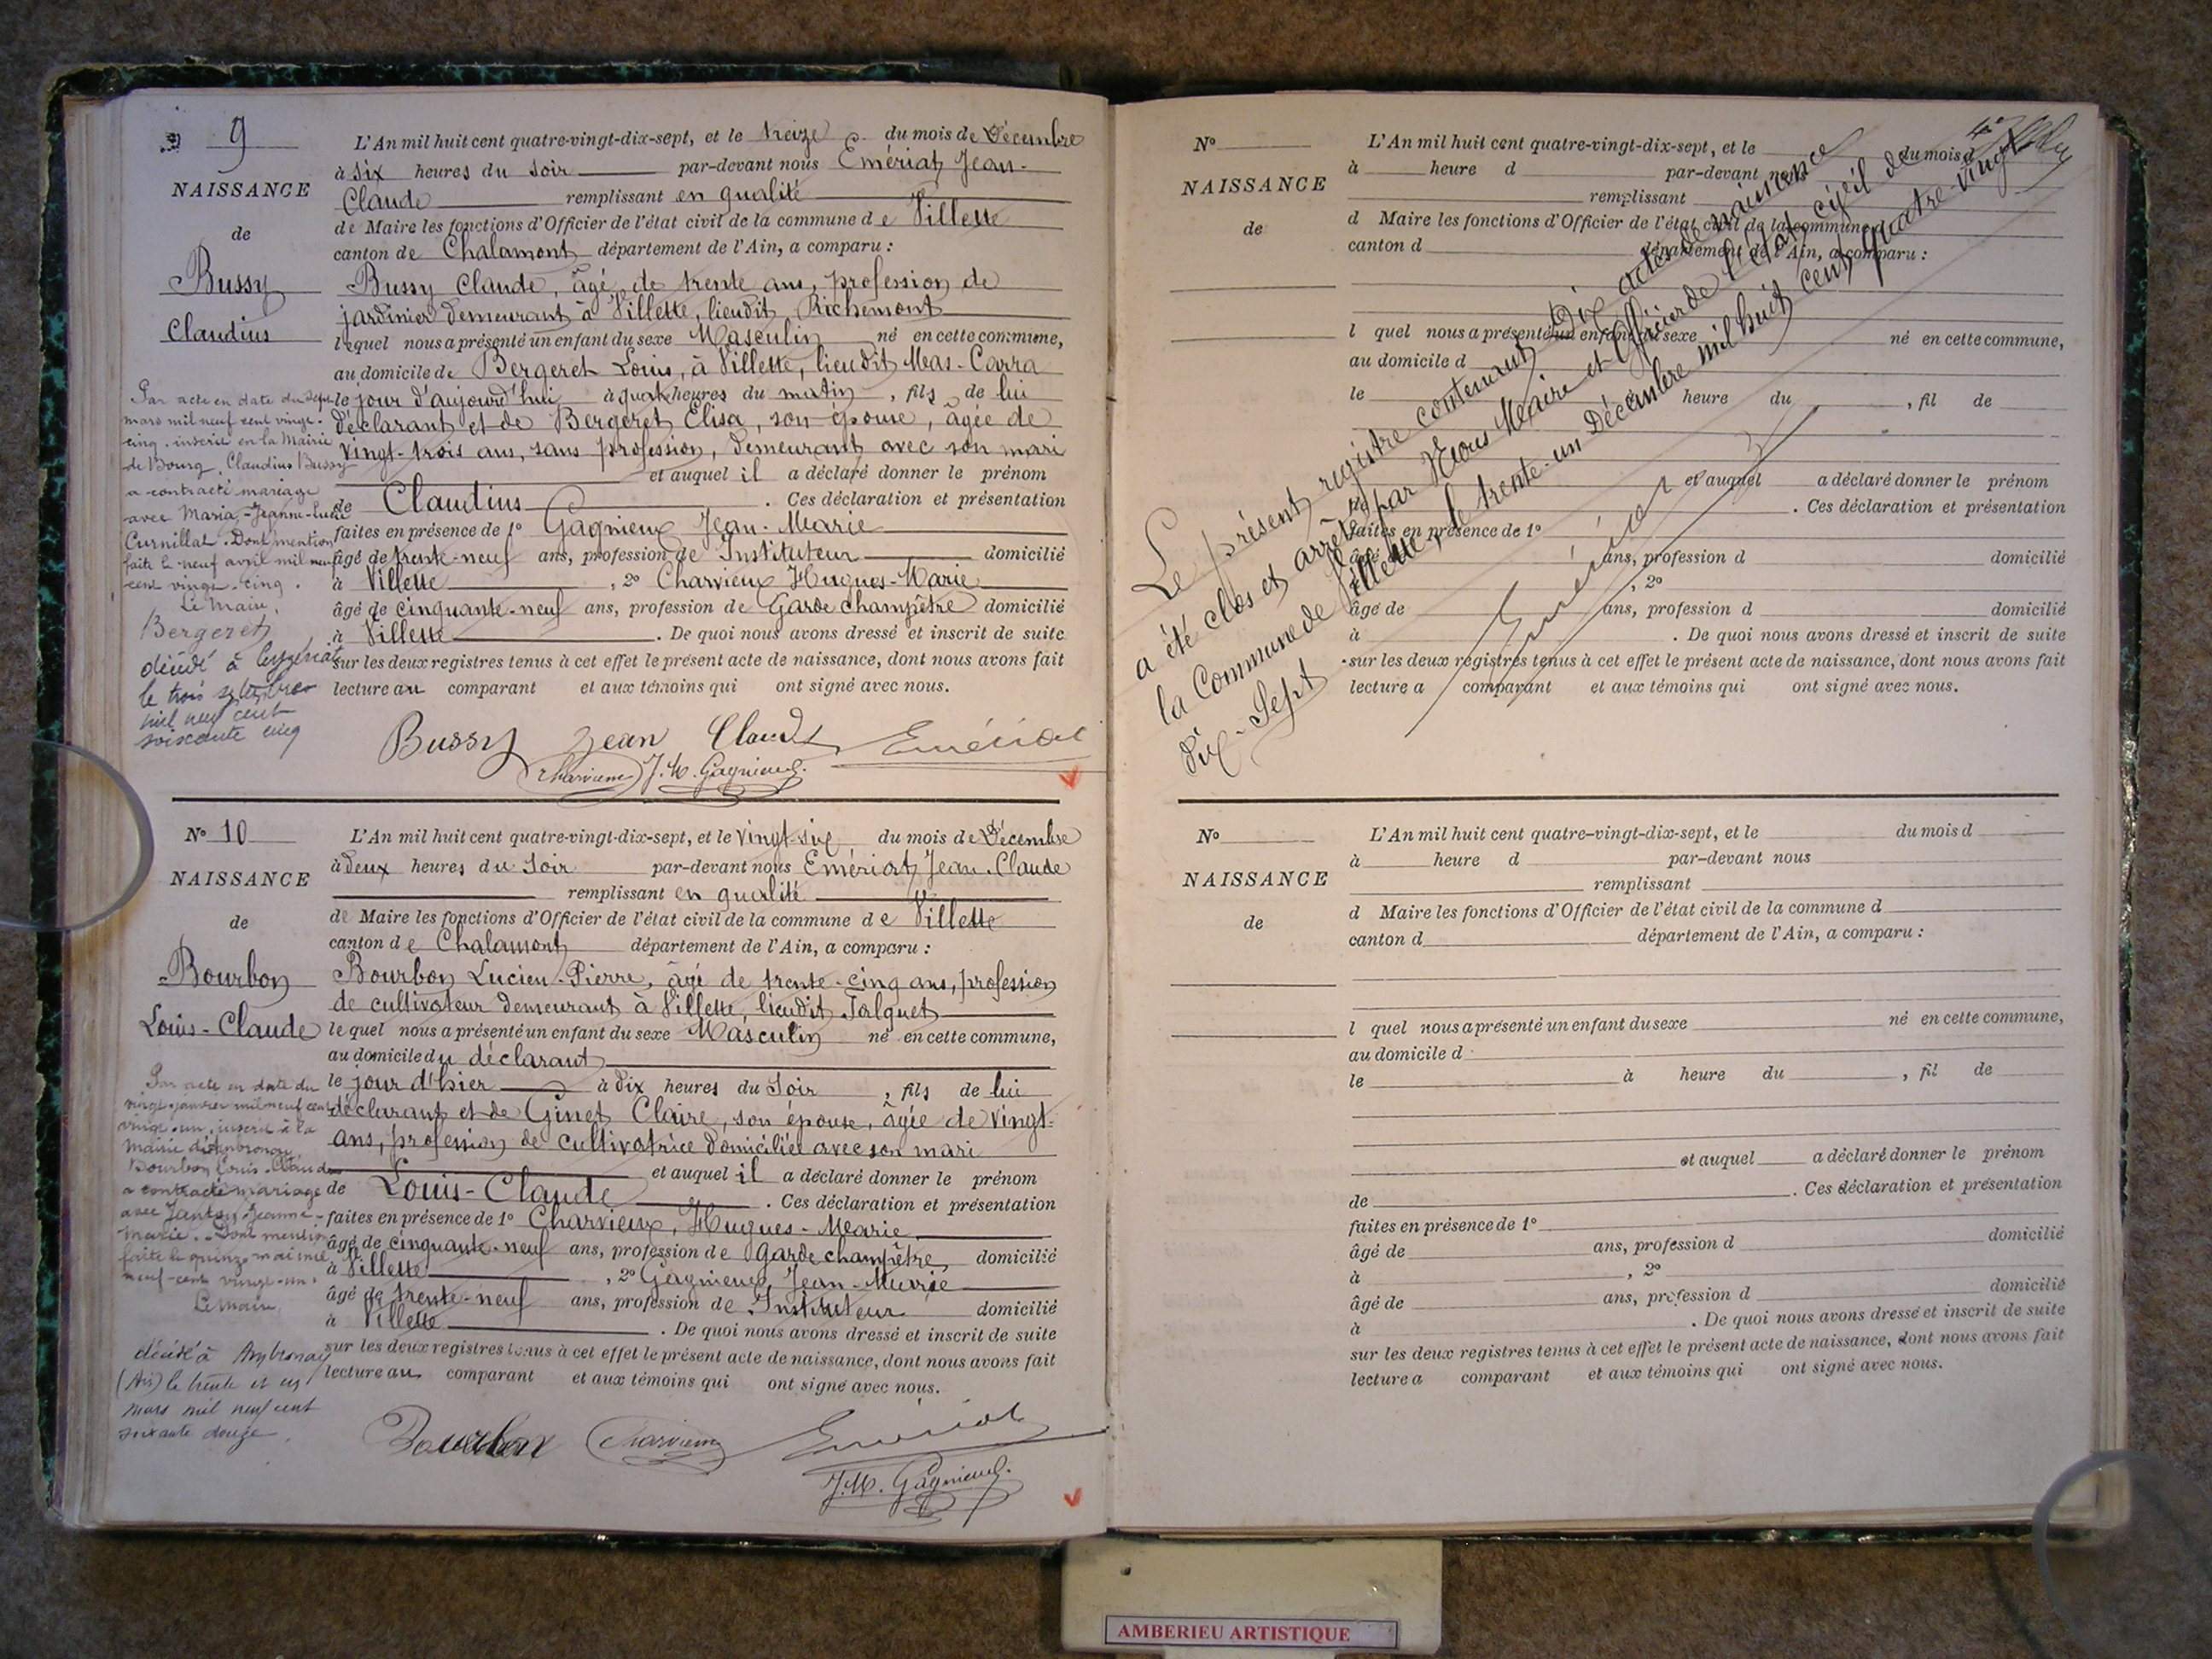 9
NAISSANCE
de
Bussy
Claudius
L'An mil huit cent quatre-vingt-dix-sept, et le treize du mois de Décembre
à six heures du soir par-devant nous Emériat Jean-
Claude remplissant en qualité
de Maire les fonctions d'Officier de l'état civil de la commune de Villette
canton de Chalamont département de l'Ain, a comparu :
Bussy Claude, âgé de trente ans, profession de
jardinier demeurant à Villette, lieudit Richemont
lequel nous a présenté un enfant du sexe Masculin né en cette commune,
au domicile de Bergeret Louis, à Villette, lieudit Mas-Carra
le jour d'aujourd'hui à quatre heures du matin, fils de lui
déclarant et de Bergeret Elisa, son épouse, âgée de
vingt-trois ans, sans profession, demeurant avec son mari
et auquel il a déclaré donner le prénom
de Claudius . Ces déclaration et présentation
faites en présence de 1º Gagnieux Jean-Marie
âgé de trente-neuf ans, profession de Instituteur domicilié
à Villette, 2º Charvieux Hugues-Marie
âgé de cinquante-neuf ans, profession de Garde champêtre domicilié
à Villette . De quoi nous avons dressé et inscrit de suite
sur les deux registres tenus à cet effet le présent acte de naissance, dont nous avons fait
lecture au comparant et aux témoins qui ont signé avec nous.
Par acte en date du sept
mars mil neuf cent vingt-
cinq inscrit en la Mairie
de Bourg, Claudius Bussy
a contracté mariage
avec Maria-Jeanne-
Curnillat. Dont mention
faite le neuf avril mil neuf
cent vingt-cinq.
Le Maire,
Bergeret
décédé à
le trois septembre
mil neuf cent
soixante cinq
Bussy Jean Claude Emériat
Charvieux J. M. Gagnieux.
Nº 10
NAISSANCE
de
Bourbon
Louis-Claude
L'An mil huit cent quatre-vingt-dix-sept, et le vingt-six du mois de Décembre
à deux heures du soir par-devant nous Emériat Jean-Claude
remplissant en qualité
de Maire les fonctions d'Officier de l'état civil de la commune de Villette
canton de Chalamont département de l'Ain, a comparu :
Bourbon Lucien-Pierre, âgé de trente-cinq ans, profession
de cultivateur demeurant à Villette, lieudit Jalquet
lequel nous a présenté un enfant du sexe Masculin né en cette commune,
au domicile du déclarant
le jour d'hier à dix heures du soir, fils de lui
déclarant et de Ginet Claire, son épouse, âgée de vingt-
ans, profession de cultivatrice domiciliée avec son mari
et auquel il a déclaré donner le prénom
de Louis-Claude . Ces déclaration et présentation
faites en présence de 1º Charvieux, Hugues-Marie
âgé de cinquante-neuf ans, profession de Garde champêtre, domicilié
à Villette, 2º Gagnieux, Jean-Marie
âgé de trente-neuf ans, profession de Instituteur domicilié
à Villette . De quoi nous avons dressé et inscrit de suite
sur les deux registres tenus à cet effet le présent acte de naissance, dont nous avons fait
lecture au comparant et aux témoins qui ont signé avec nous.
Par acte en date du
vingt janvier mil neuf cent
vingt-un, inscrit à la
mairie d'Ambronay,
Bourbon Louis-Claude
a contracté mariage
avec Janton Jeanne-
Marie. Dont mention
faite le quinze mai mil
neuf-cent vingt-un.
Le Maire,
décédé à Ambronay
(Ain) le trente et un
mars mil neuf cent
soixante douze
Bourbon Charvieux Emériat
J. M. Gagnieux.
Nº
NAISSANCE
de
L'An mil huit cent quatre-vingt-dix-sept, et le du mois d
à heure d par-devant nous
remplissant
d Maire les fonctions d'Officier de l'état civil de la commune d
canton d département de l'Ain, a comparu :
l quel nous a présenté un enfant du sexe né en cette commune,
au domicile d
le heure du , fil de
et auquel a déclaré donner le prénom
. Ces déclaration et présentation
faites en présence de 1º
ans, profession d domicilié
, 2º
âgé de ans, profession d domicilié
à . De quoi nous avons dressé et inscrit de suite
sur les deux registres tenus à cet effet le présent acte de naissance, dont nous avons fait
lecture a comparant et aux témoins qui ont signé avec nous.
Le présent registre contenant Dix actes de naissance
a été clos et arrêté par Nous Maire et Officier de l'état civil de
la Commune de Villette, le trente-un Décembre mil huit cent quatre-vingt-
dix-sept
Emériat
Nº
NAISSANCE
de
L'An mil huit cent quatre-vingt-dix-sept, et le du mois d
à heure d par-devant nous
remplissant
d Maire les fonctions d'Officier de l'état civil de la commune d
canton d département de l'Ain, a comparu :
l quel nous a présenté un enfant du sexe né en cette commune,
au domicile d
le à heure du , fil de
et auquel a déclaré donner le prénom
de . Ces déclaration et présentation
faites en présence de 1º
âgé de ans, profession d domicilié
à , 2º
âgé de ans, profession d domicilié
à . De quoi nous avons dressé et inscrit de suite
sur les deux registres tenus à cet effet le présent acte de naissance, dont nous avons fait
lecture a comparant et aux témoins qui ont signé avec nous.
AMBERIEU ARTISTIQUE